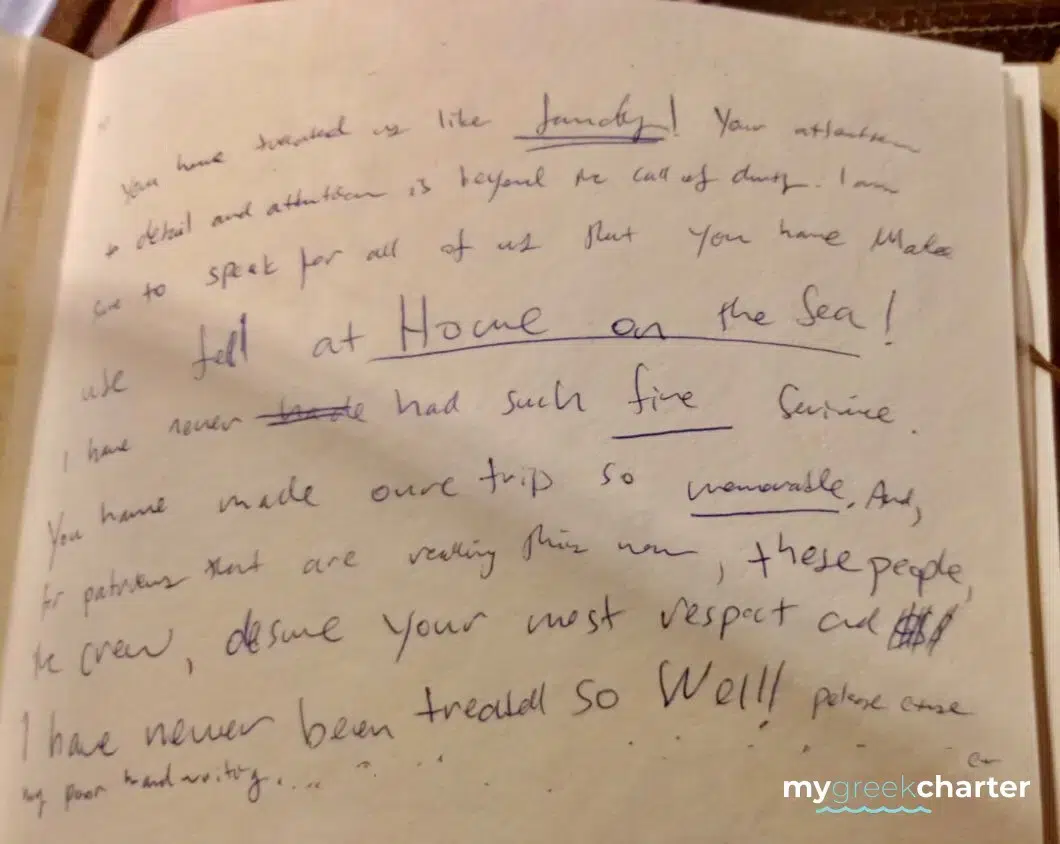 You have treated us like family! Your attention
to detail and attention is beyond the call of duty. I am
sure to speak for all of us that you have Made
use fell at Home on the Sea!
I have never had such fine Service.
You have made oure trip so memorable. And,
for patrons that are reading this now, these people,
the crew, desurve your most respect and $$$!
I have never been treated so Well!! please excuse
my poor handwriting....
mygreekcharter